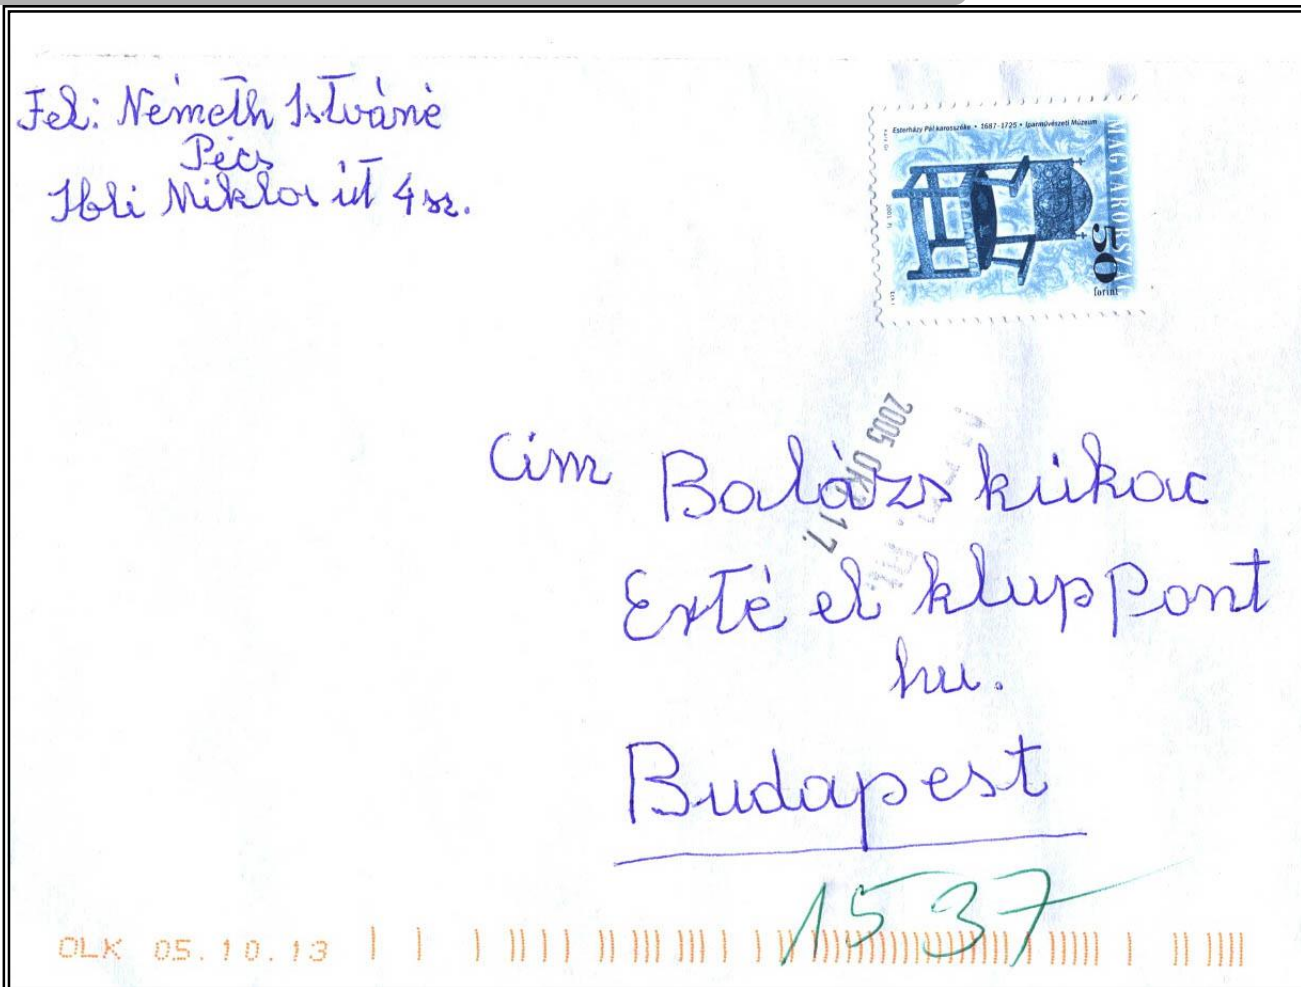 Fel: Németh Istváné
Pécs
Ibli Miklos út 4 sz.
Esterházy Pál karosszéke • 1687-1725 • Iparművészeti Múzeum
MAGYARORSZÁG
50
forint
2005 OKT 17.
Cím Balázs kukac
Erté el klup Pont
hu.
Budapest
1537
OLK 05.10.13